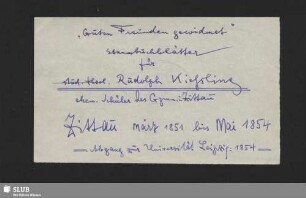 „Guten Freunden gewidmet"
Stammbuchblätter
für
stud. theol. Rudolph Kießling
ehem. Schüler des Gymn. Zittau
Zittau März 1851 bis Mai 1854
— Abgang zur Universität Leipzig. 1854 —
SLUB